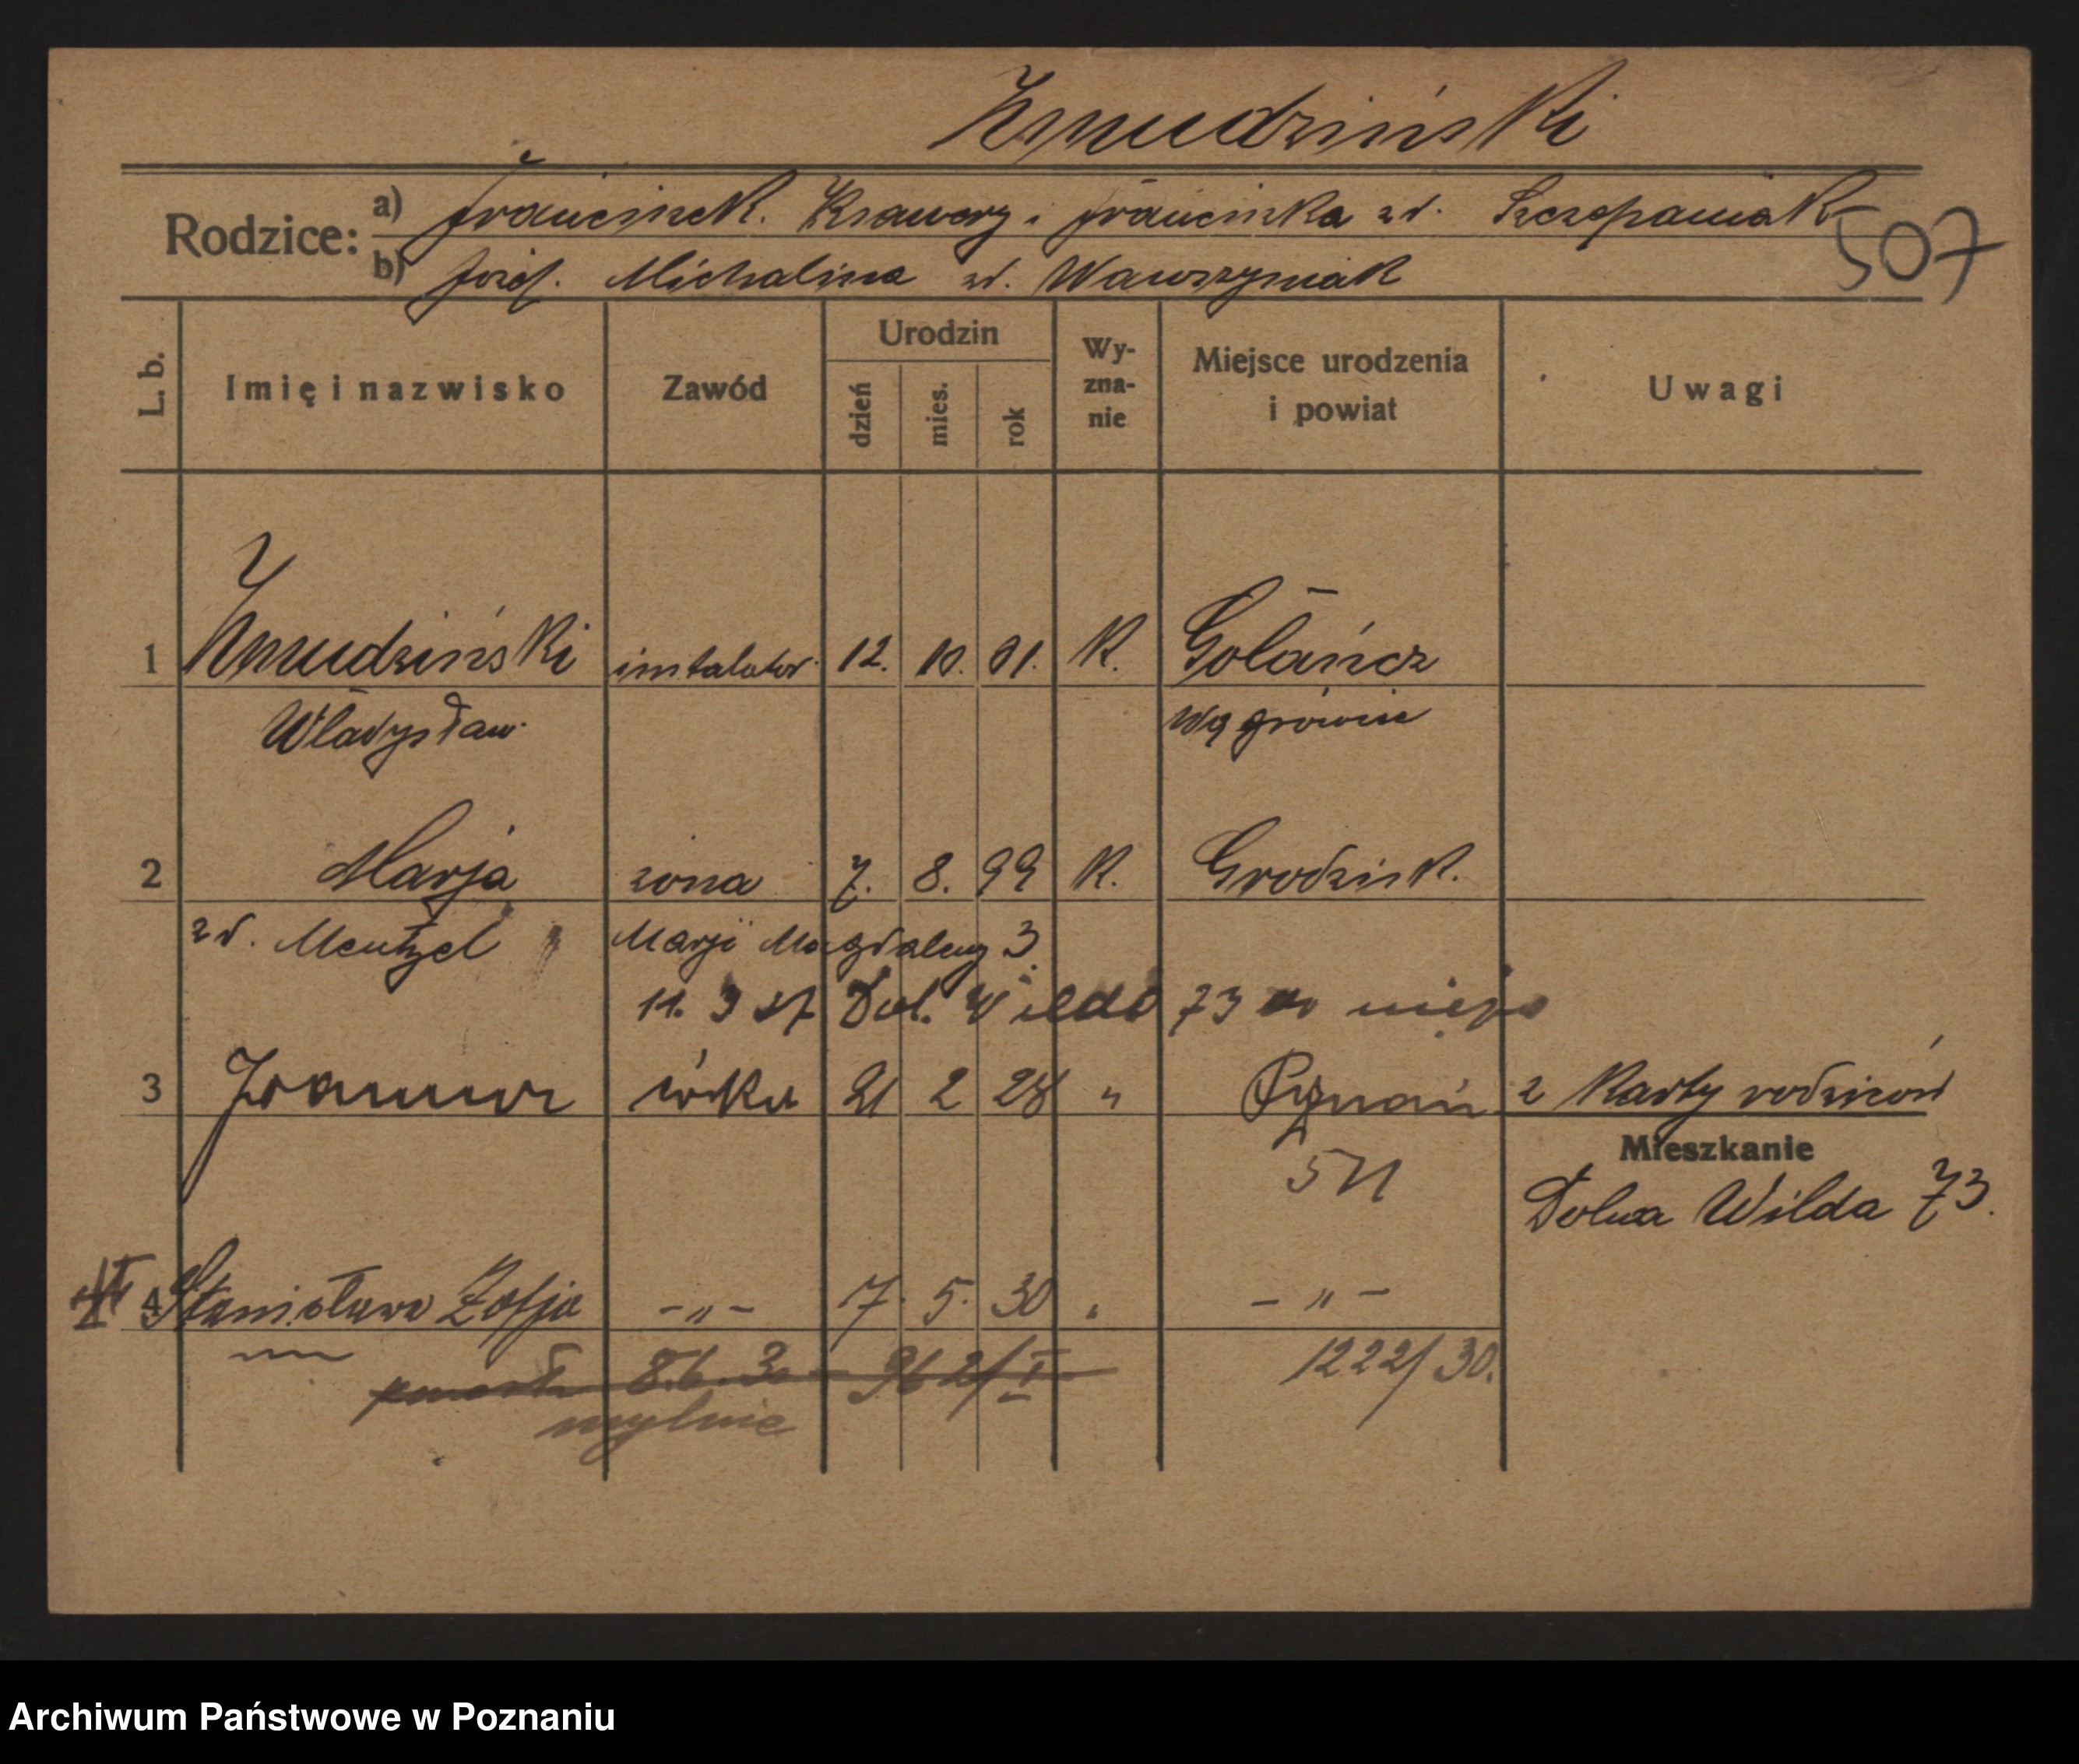 Żmudziński
Rodzice: a) Franciszek. Ksawery i Franciszka zd. Szczepaniak
507
b) Józef. Michalina zd. Wawrzyniak
L. b. Imię i nazwisko Zawód Urodzin dzień mies. rok Wy-zna-nie Miejsce urodzenia i powiat Uwagi
1 Żmudziński instalator 12. 10. 01. K. Gołańcz
Władysław Wągrówiec
2 Marja żona 7. 8. 99 K. Grodzisk.
zd. Mentzel Marji Magdaleny 3
11. 3 27 Dol. Wilda 73 do niego
3 córka 21 2 28 " Poznań z karty rodziców
Mieszkanie
511 Dolna Wilda 73.
4 Stanisława Zofja - " - 7. 5. 30 " - " -
8.6.30 962/I 1222/30.
mylnie
Archiwum Państwowe w Poznaniu